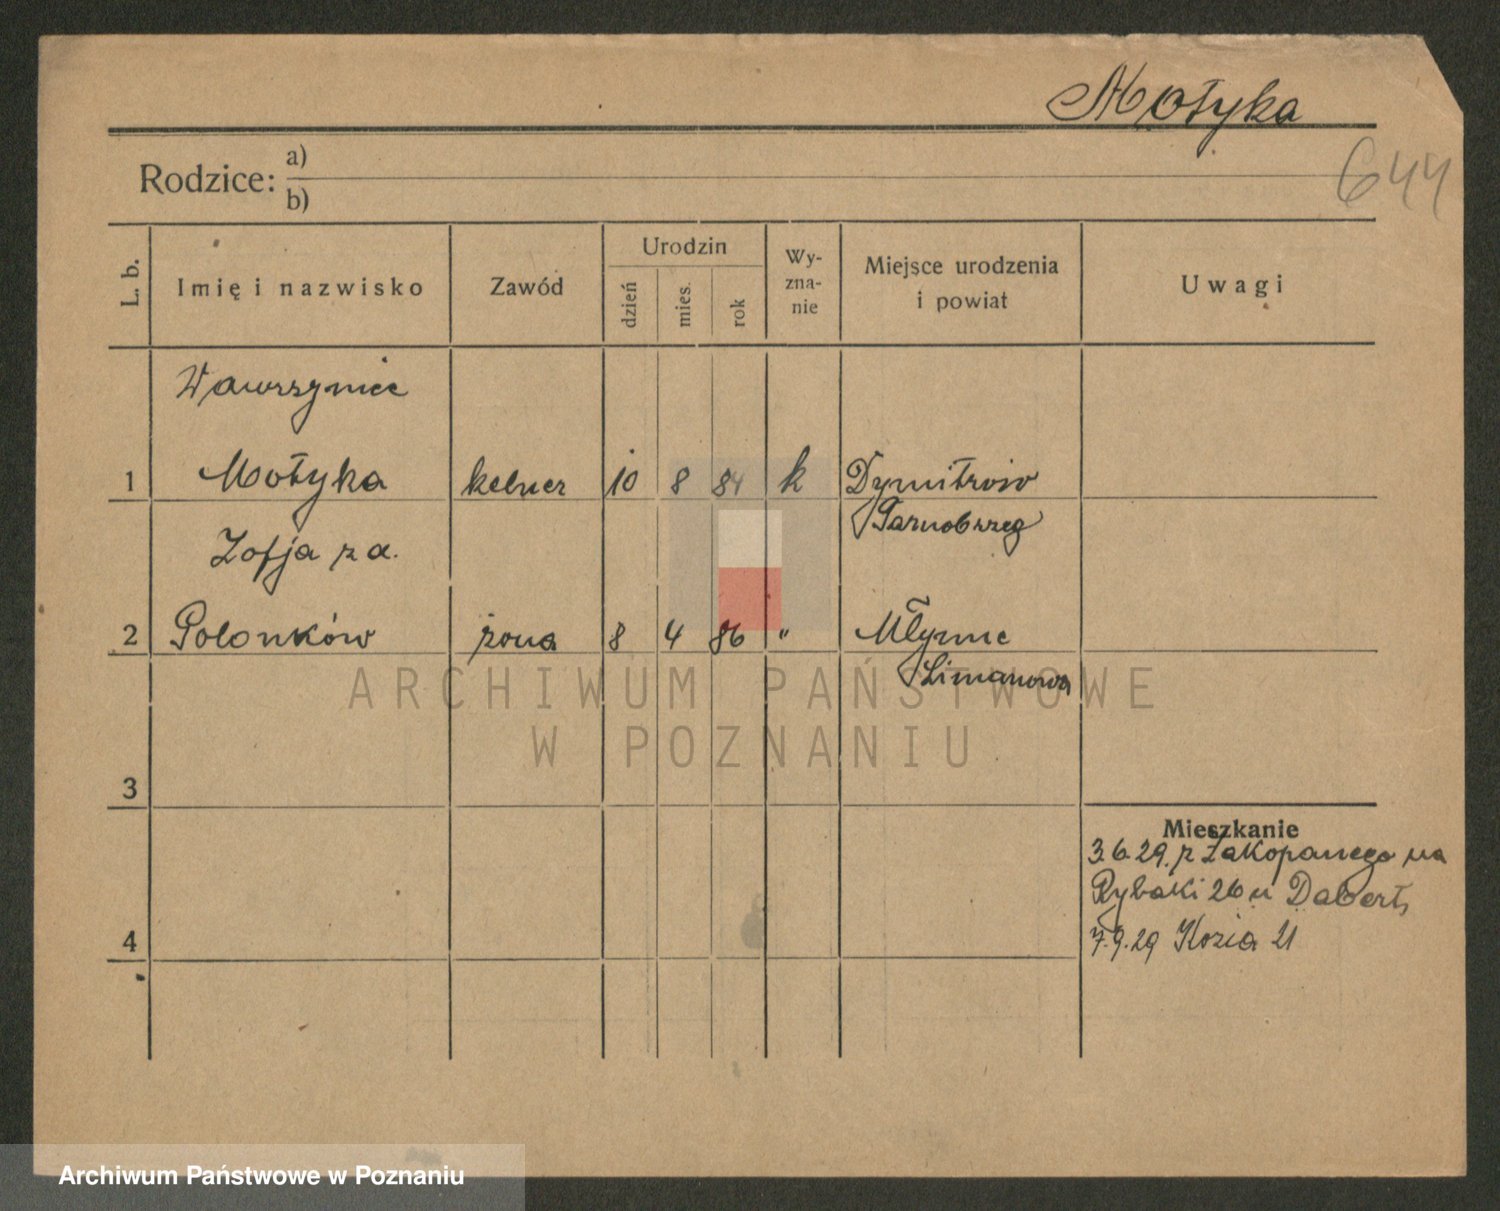 Motyka
644
Rodzice: a)
b)
L. b. Imię i nazwisko Zawód Urodzin dzień mies. rok Wy-zna-nie Miejsce urodzenia i powiat Uwagi
Wawrzyniec
1 Motyka kelner 10 8 84 k Dymitrów
Tarnobrzeg
Zofja z d.
2 Polonków żona 8 4 86 " Młynne
Limanowa
ARCHIWUM PAŃSTWOWE
W POZNANIU
3
Mieszkanie
3.6.29. z Zakopanego na
Rybaki 26 u Dabert
4 7.9.29 Kozia 21
Archiwum Państwowe w Poznaniu